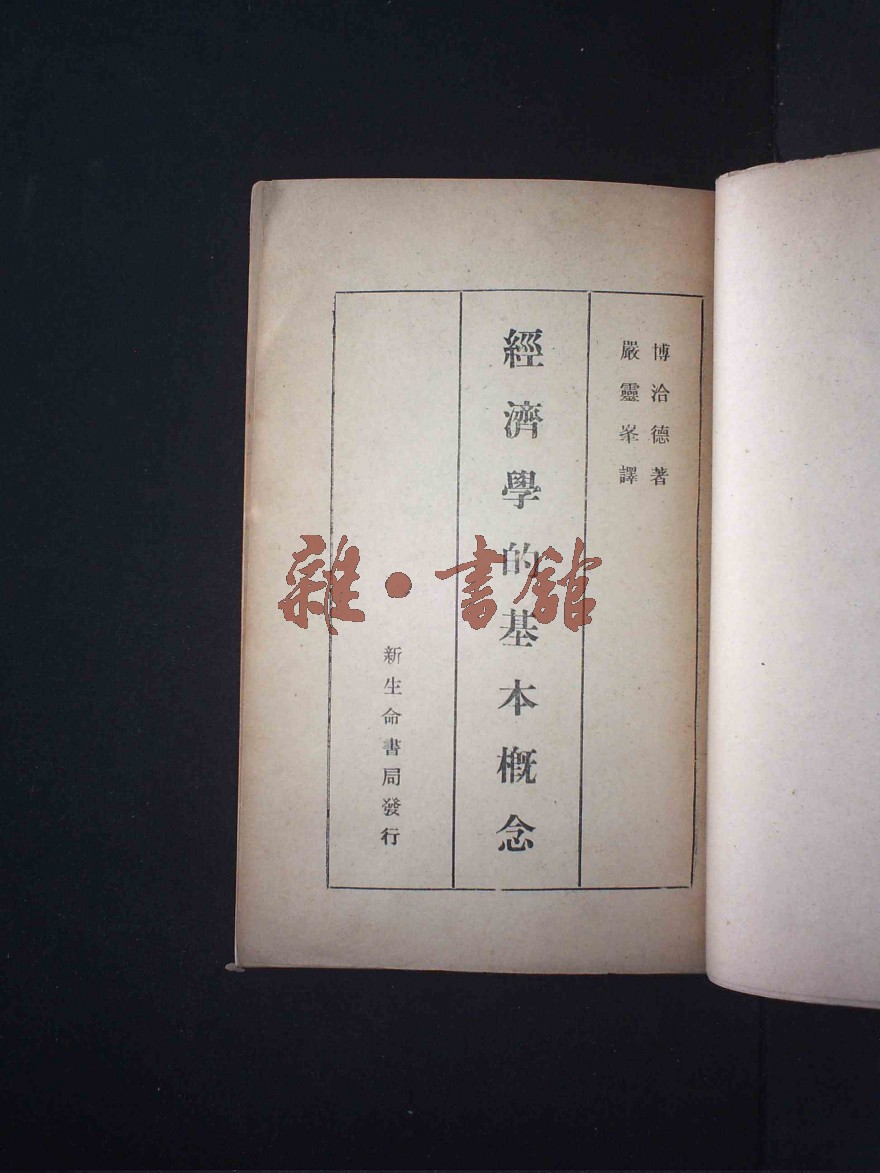 博洽德著
嚴靈峯譯
經濟學的基本概念
新生命書局發行
雜·書館